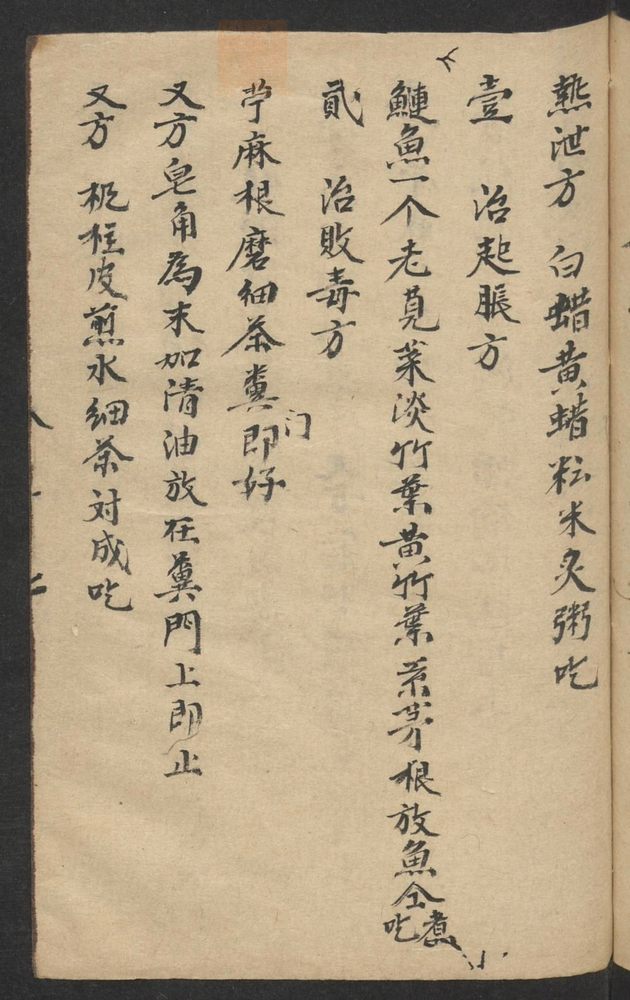 熱泄方 白蜡黄蜡粘米炙粥吃
壹 治起脹方
鰱魚一个老莧菜淡竹葉黄竹葉茶茅根放魚仝煮吃
貳 治敗毒方
苧麻根磨細茶糞门即好
又方皂角為末加清油放在糞門上即止
又方 桅桂皮煎水細茶对成吃